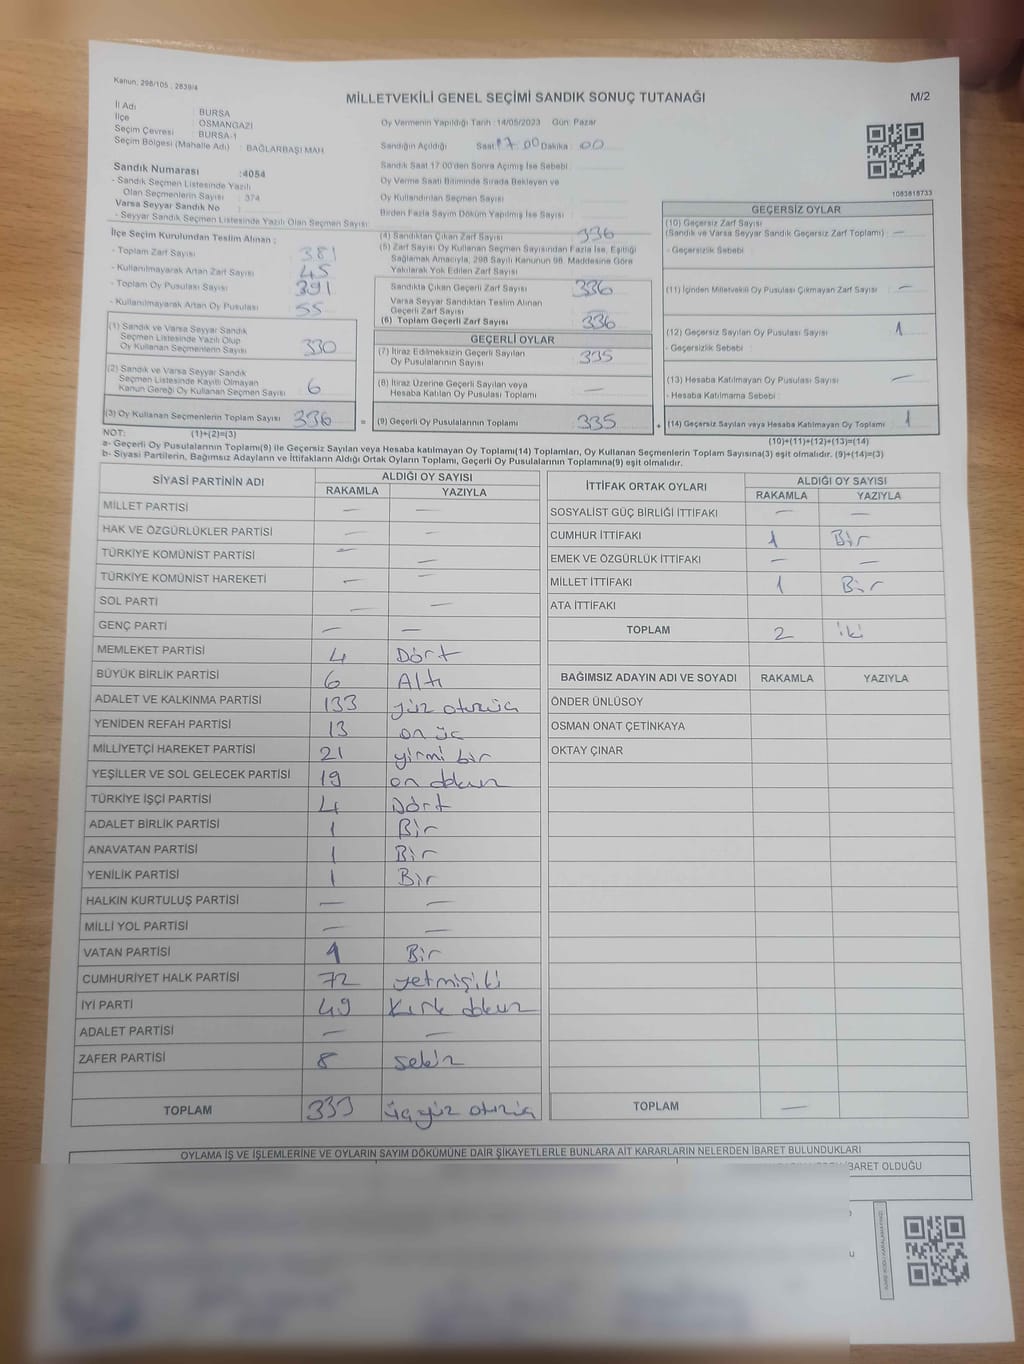 Kanun: 298/105 ; 2839/4
MİLLETVEKİLİ GENEL SEÇİMİ SANDIK SONUÇ TUTANAĞI
M/2
İl Adı : BURSA
İlçe : OSMANGAZİ
Seçim Çevresi : BURSA-1
Seçim Bölgesi (Mahalle Adı) : BAĞLARBAŞI MAH
Sandık Numarası :4054
- Sandık Seçmen Listesinde Yazılı
Olan Seçmenlerin Sayısı : 374
Varsa Seyyar Sandık No :
- Seyyar Sandık Seçmen Listesinde Yazılı Olan Seçmen Sayısı:
Oy Vermenin Yapıldığı Tarih : 14/05/2023 Gün: Pazar
Sandığın Açıldığı Saat 17.00 Dakika : 00
Sandık Saat 17:00'den Sonra Açımış İse Sebebi
Oy Verme Saati Bitiminde Sırada Bekleyen ve
Oy Kullandırılan Seçmen Sayısı
Birden Fazla Sayım Döküm Yapılmış İse Sayısı
1083818733
İlçe Seçim Kurulundan Teslim Alınan ;
- Toplam Zarf Sayısı : 381
- Kullanılmayarak Artan Zarf Sayısı : 45
- Toplam Oy Pusulası Sayısı : 391
- Kullanılmayarak Artan Oy Pusulası : 55
(1) Sandık ve Varsa Seyyar Sandık
Seçmen Listesinde Yazılı Olup
Oy Kullanan Seçmenlerin Sayısı : 330
(2) Sandık ve Varsa Seyyar Sandık
Seçmen Listesinde Kayıtlı Olmayan
Kanun Gereği Oy Kullanan Seçmen Sayısı : 6
(3) Oy Kullanan Seçmenlerin Toplam Sayısı : 336
(4) Sandıktan Çıkan Zarf Sayısı : 336
(5) Zarf Sayısı Oy Kullanan Seçmen Sayısından Fazla İse, Eşitliği
Sağlamak Amacıyla, 298 Sayılı Kanunun 98. Maddesine Göre
Yakılarak Yok Edilen Zarf Sayısı
Sandıkta Çıkan Geçerli Zarf Sayısı 336
Varsa Seyyar Sandıktan Teslim Alınan
Geçerli Zarf Sayısı
(6) Toplam Geçerli Zarf Sayısı : 336
GEÇERLİ OYLAR
(7) İtiraz Edilmeksizin Geçerli Sayılan
Oy Pusulalarının Sayısı : 335
(8) İtiraz Üzerine Geçerli Sayılan veya
Hesaba Katılan Oy Pusulası Toplamı : —
= (9) Geçerli Oy Pusulalarının Toplamı : 335
GEÇERSİZ OYLAR
(10) Geçersiz Zarf Sayısı
(Sandık ve Varsa Seyyar Sandık Geçersiz Zarf Toplamı) : —
- Geçersizlik Sebebi :
(11) İçinden Milletvekili Oy Pusulası Çıkmayan Zarf Sayısı : —
(12) Geçersiz Sayılan Oy Pusulası Sayısı : 1
- Geçersizlik Sebebi
(13) Hesaba Katılmayan Oy Pusulası Sayısı : —
- Hesaba Katılmama Sebebi :
+ (14) Geçersiz Sayılan veya Hesaba Katılmayan Oy Toplamı : 1
NOT: (1)+(2)=(3) (10)+(11)+(12)+(13)=(14)
a- Geçerli Oy Pusulalarının Toplamı(9) ile Geçersiz Sayılan veya Hesaba katılmayan Oy Toplamı(14) Toplamları, Oy Kullanan Seçmenlerin Toplam Sayısına(3) eşit olmalıdır. (9)+(14)=(3)
b- Siyasi Partilerin, Bağımsız Adayların ve İttifakların Aldığı Ortak Oyların Toplamı, Geçerli Oy Pusulalarının Toplamına(9) eşit olmalıdır.
SİYASİ PARTİNİN ADI ALDIĞI OY SAYISI
RAKAMLA YAZIYLA
MİLLET PARTİSİ — —
HAK VE ÖZGÜRLÜKLER PARTİSİ — —
TÜRKİYE KOMÜNİST PARTİSİ — —
TÜRKİYE KOMÜNİST HAREKETİ — —
SOL PARTİ — —
GENÇ PARTİ — —
MEMLEKET PARTİSİ 4 Dört
BÜYÜK BİRLİK PARTİSİ 6 Altı
ADALET VE KALKINMA PARTİSİ 133 yüz otuzüç
YENİDEN REFAH PARTİSİ 13 on üç
MİLLİYETÇİ HAREKET PARTİSİ 21 yirmi bir
YEŞİLLER VE SOL GELECEK PARTİSİ 19 on dokuz
TÜRKİYE İŞÇİ PARTİSİ 4 Dört
ADALET BİRLİK PARTİSİ 1 Bir
ANAVATAN PARTİSİ 1 Bir
YENİLİK PARTİSİ 1 Bir
HALKIN KURTULUŞ PARTİSİ — —
MİLLİ YOL PARTİSİ — —
VATAN PARTİSİ 1 Bir
CUMHURİYET HALK PARTİSİ 72 yetmişiki
İYİ PARTİ 49 Kırk dokuz
ADALET PARTİSİ — —
ZAFER PARTİSİ 8 sekiz
TOPLAM 333 üçyüz otuzüç
İTTİFAK ORTAK OYLARI ALDIĞI OY SAYISI
RAKAMLA YAZIYLA
SOSYALİST GÜÇ BİRLİĞİ İTTİFAKI — —
CUMHUR İTTİFAKI 1 Bir
EMEK VE ÖZGÜRLÜK İTTİFAKI — —
MİLLET İTTİFAKI 1 Bir
ATA İTTİFAKI
TOPLAM 2 iki
BAĞIMSIZ ADAYIN ADI VE SOYADI RAKAMLA YAZIYLA
ÖNDER ÜNLÜSOY
OSMAN ONAT ÇETİNKAYA
OKTAY ÇINAR
TOPLAM —
OYLAMA İŞ VE İŞLEMLERİNE VE OYLARIN SAYIM DÖKÜMÜNE DAİR ŞİKAYETLERLE BUNLARA AİT KARARLARIN NELERDEN İBARET BULUNDUKLARI
İBARET OLDUĞU